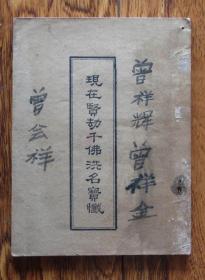 曾祥輝 曾祥金
現在賢劫千佛洪名寶懺
曾会祥